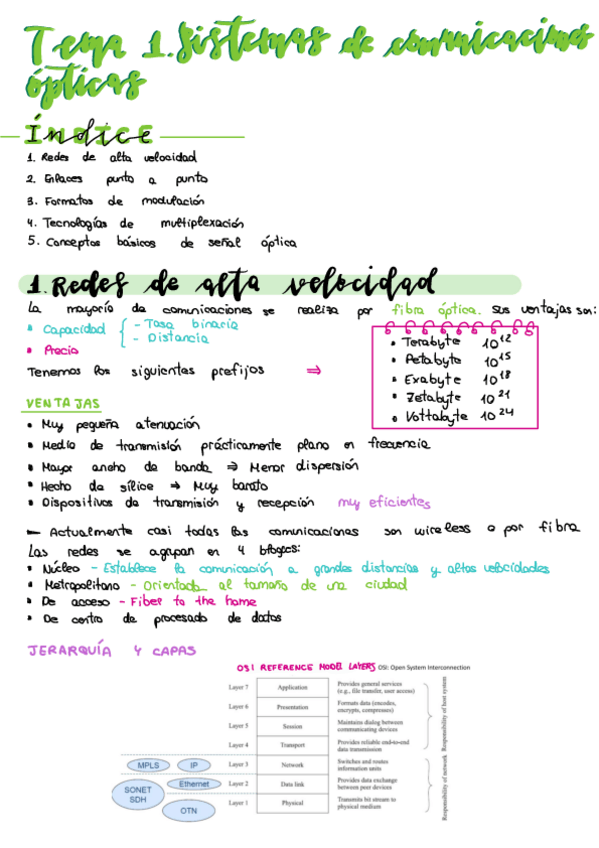 Tema 1. Sistemas de comunicaciones
ópticas
Índice
1. Redes de alta velocidad
2. Enlaces punto a punto
3. Formatos de modulación
4. Tecnologías de multiplexación
5. Conceptos básicos de señal óptica
1. Redes de alta velocidad
La mayoría de comunicaciones se realiza por fibra óptica. Sus ventajas son:
• Capacidad { - Tasa binaria
- Distancia
• Precio
Tenemos los siguientes prefijos ⇒
• Terabyte 10^12
• Petabyte 10^15
• Exabyte 10^18
• Zetabyte 10^21
• Yottabyte 10^24
VENTAJAS
• Muy pequeña atenuación
• Medio de transmisión prácticamente plano en frecuencia
• Mayor ancho de banda ⇒ Menor dispersión
• Hecho de sílice ⇒ Muy barato
• Dispositivos de transmisión y recepción muy eficientes
— Actualmente casi todas las comunicaciones son wireless o por fibra
Las redes se agrupan en 4 bloques:
• Núcleo - Establece la comunicación a grandes distancias y altas velocidades
• Metropolitano - Orientada al tamaño de una ciudad
• De acceso - Fiber to the home
• De centro de procesado de datos
JERARQUÍA Y CAPAS
OSI REFERENCE MODEL LAYERS OSI: Open System Interconnection
Layer 7 Application Provides general services
(e.g., file transfer, user access)
Layer 6 Presentation Formats data (encodes,
encrypts, compresses)
Layer 5 Session Maintains dialog between
communicating devices
Layer 4 Transport Provides reliable end-to-end
data transmission
Responsibility of host system
MPLS IP Layer 3 Network Switches and routes
information units
Ethernet Layer 2 Data link Provides data exchange
between peer devices
SONET
SDH
OTN Layer 1 Physical Transmits bit stream to
physical medium
Responsibility of network